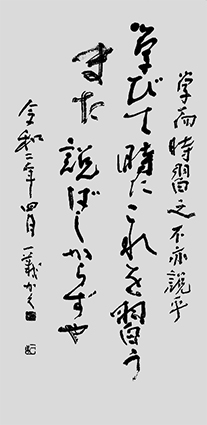 学而時習之不亦説乎
学びて時にこれを習う
また説ばしからずや
令和二年四月一義かく